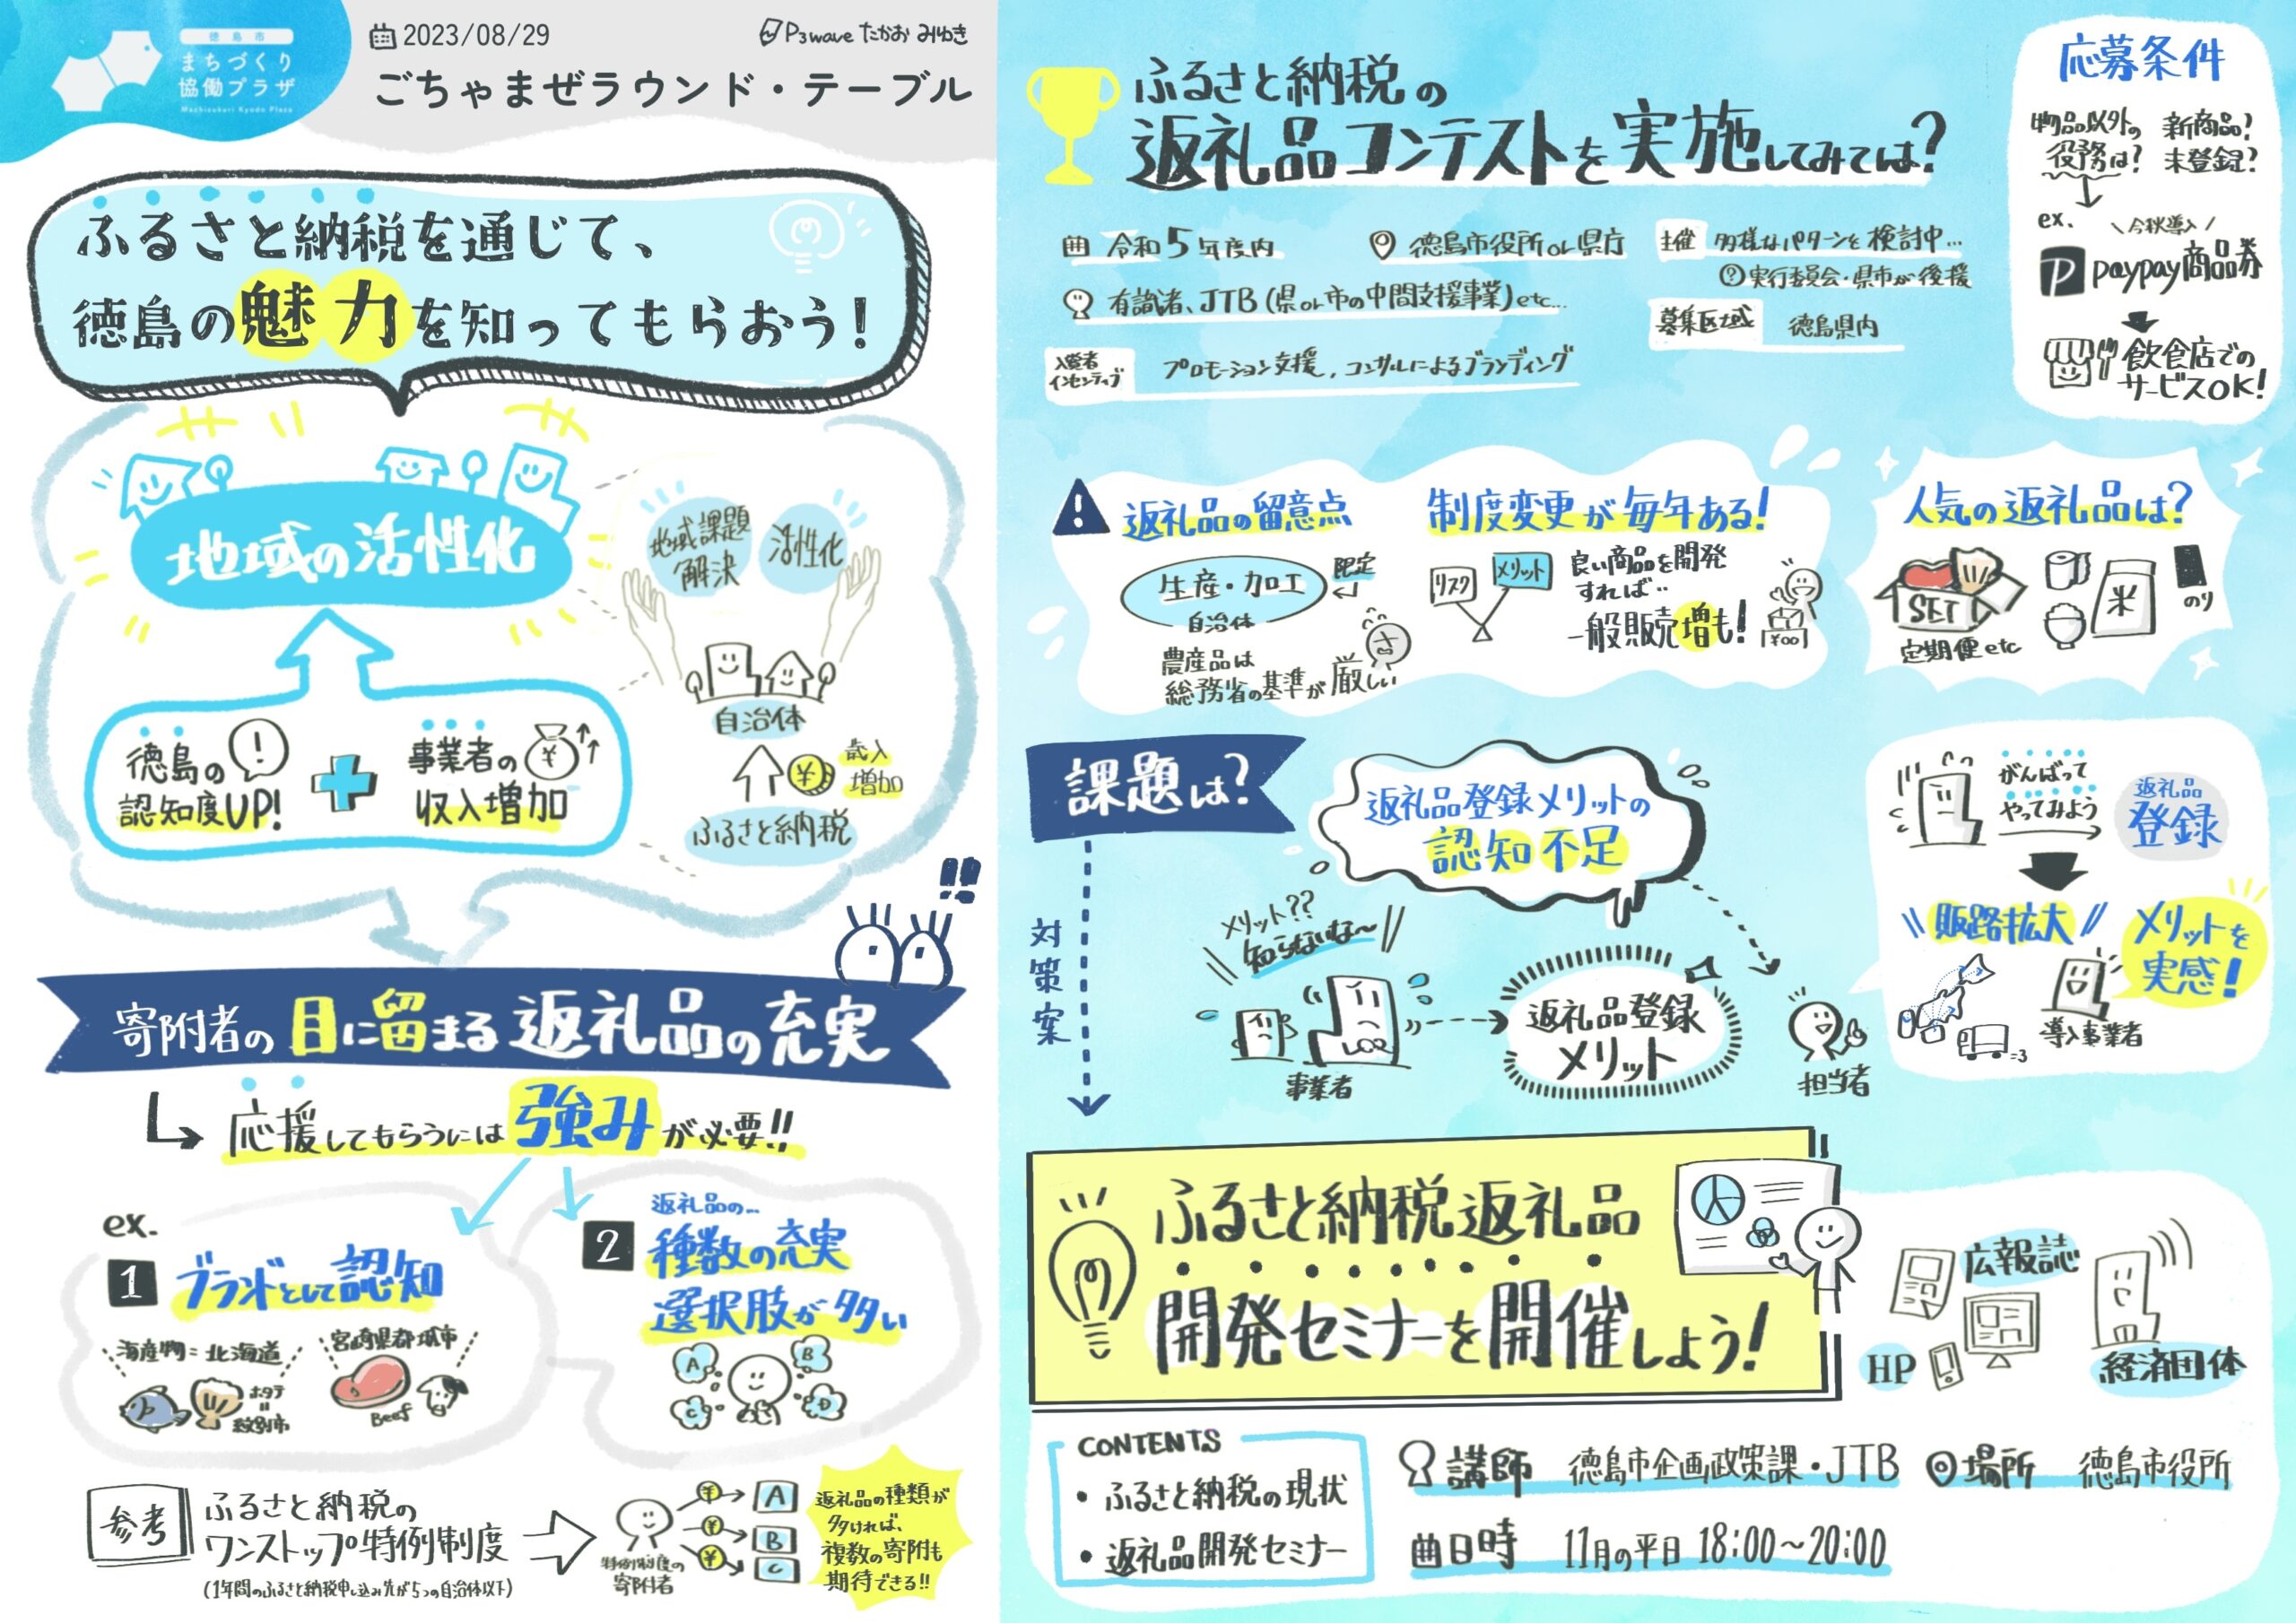 徳島市
まちづくり
協働プラザ
Machizukuri Kyodo Plaza
2023/08/29
P3wave たかお みゆき
ごちゃまぜラウンド・テーブル
ふるさと納税を通じて、
徳島の魅力を知ってもらおう!
地域の活性化
徳島の
認知度UP!
事業者の
収入増加
地域課題
解決
活性化
自治体
歳入
増加
ふるさと納税
寄附者の目に留まる返礼品の充実
応援してもらうには強みが必要!!
ex.
1 ブランドとして認知
海産物=北海道
ホタテ
=
紋別市
宮崎県都城市
Beef
2
返礼品の…
種数の充実
選択肢が多い
A
B
C
D
参考
ふるさと納税の
ワンストップ特例制度
(1年間のふるさと納税申し込み先が5つの自治体以下)
特例制度の
寄附者
A
B
C
返礼品の種類が
多ければ、
複数の寄附も
期待できる!!
ふるさと納税の
返礼品コンテストを実施してみては?
令和5年度内
徳島市役所or県庁
主催 多様なパターンを検討中…
?実行委員会・県市が後援
有識者、JTB(県or市の中間支援事業)etc…
募集区域 徳島県内
入賞者
インセンティブ
プロモーション支援,コンサルによるブランディング
応募条件
物品以外の
役務は?
新商品?
未登録?
ex.
\今秋導入/
paypay商品券
飲食店での
サービスOK!
返礼品の留意点
生産・加工
限定
自治体
農産品は
総務省の基準が厳しい
制度変更が毎年ある!
リスク
メリット
良い商品を開発
すれば…
一般販売増も!
¥00
人気の返礼品は?
SET
定期便etc
米
のり
課題は?
返礼品登録メリットの
認知不足
対策案
メリット??
知らないな〜
事業者
返礼品登録
メリット
担当者
がんばって
やってみよう
返礼品
登録
販路拡大
メリットを
実感!
導入事業者
ふるさと納税返礼品
開発セミナーを開催しよう!
広報誌
HP
経済団体
CONTENTS
・ふるさと納税の現状
・返礼品開発セミナー
講師 徳島市企画政策課・JTB
場所 徳島市役所
日時 11月の平日 18:00〜20:00